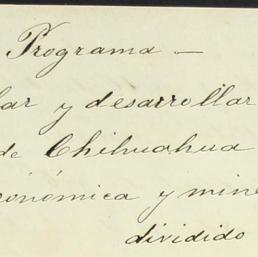 Programa —
lar y desarrollar
de Chihuahua
onómica y mine
dividido